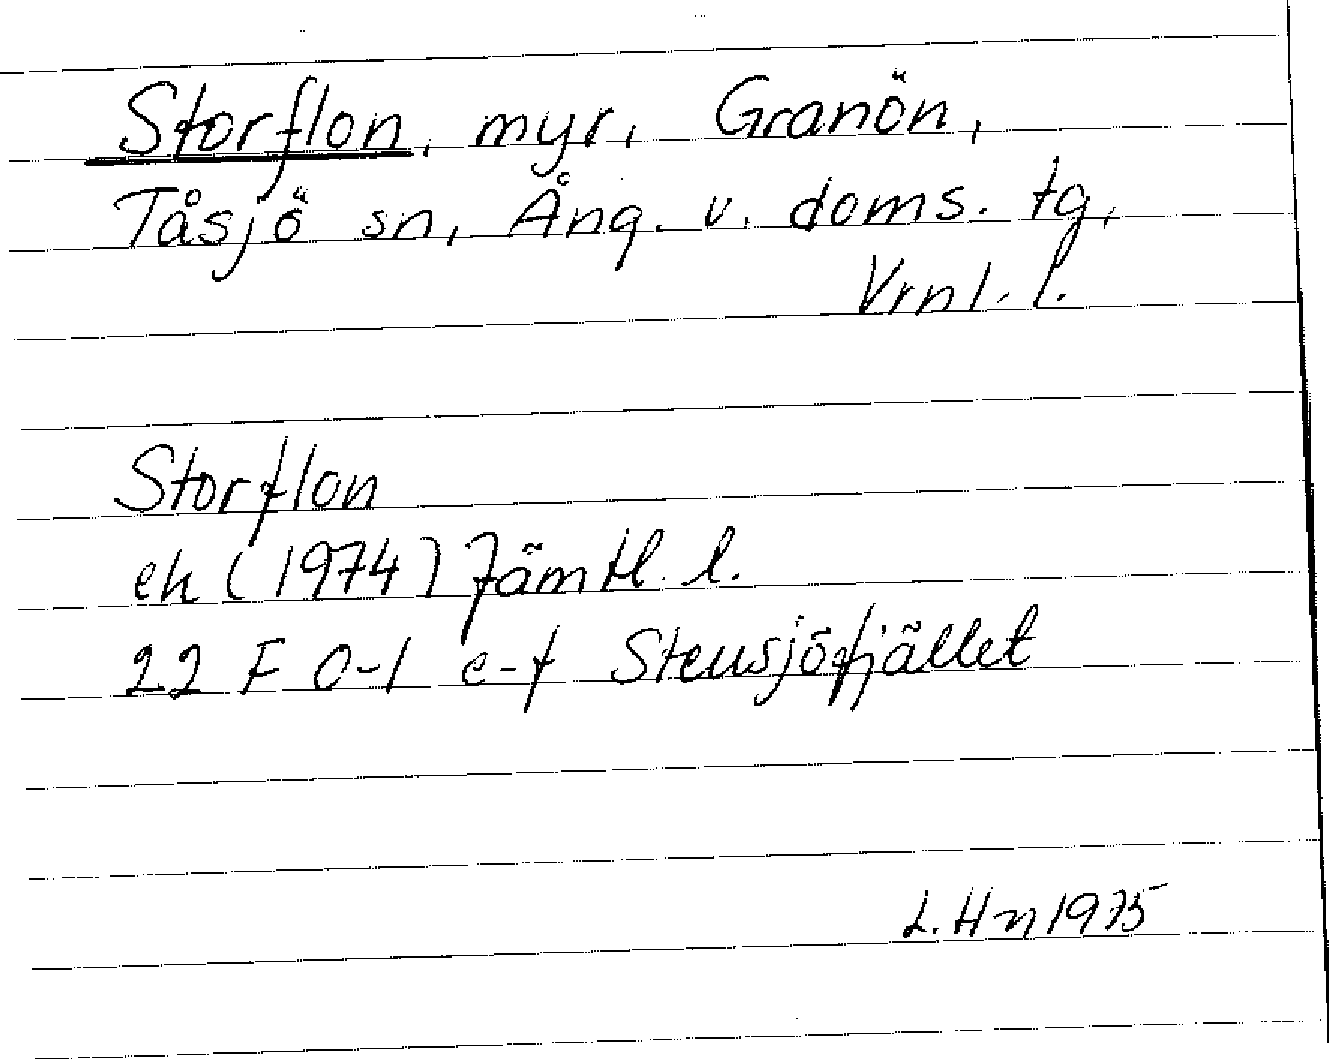 Storflon, myr, Granön,
Tåsjö sn, Ång. v. doms. tg,
Vrnl. l.
Storflon
ek (1974) Jämtl. l.
22 F 0-1 e-f Stensjöfjället
L. Hn 1975